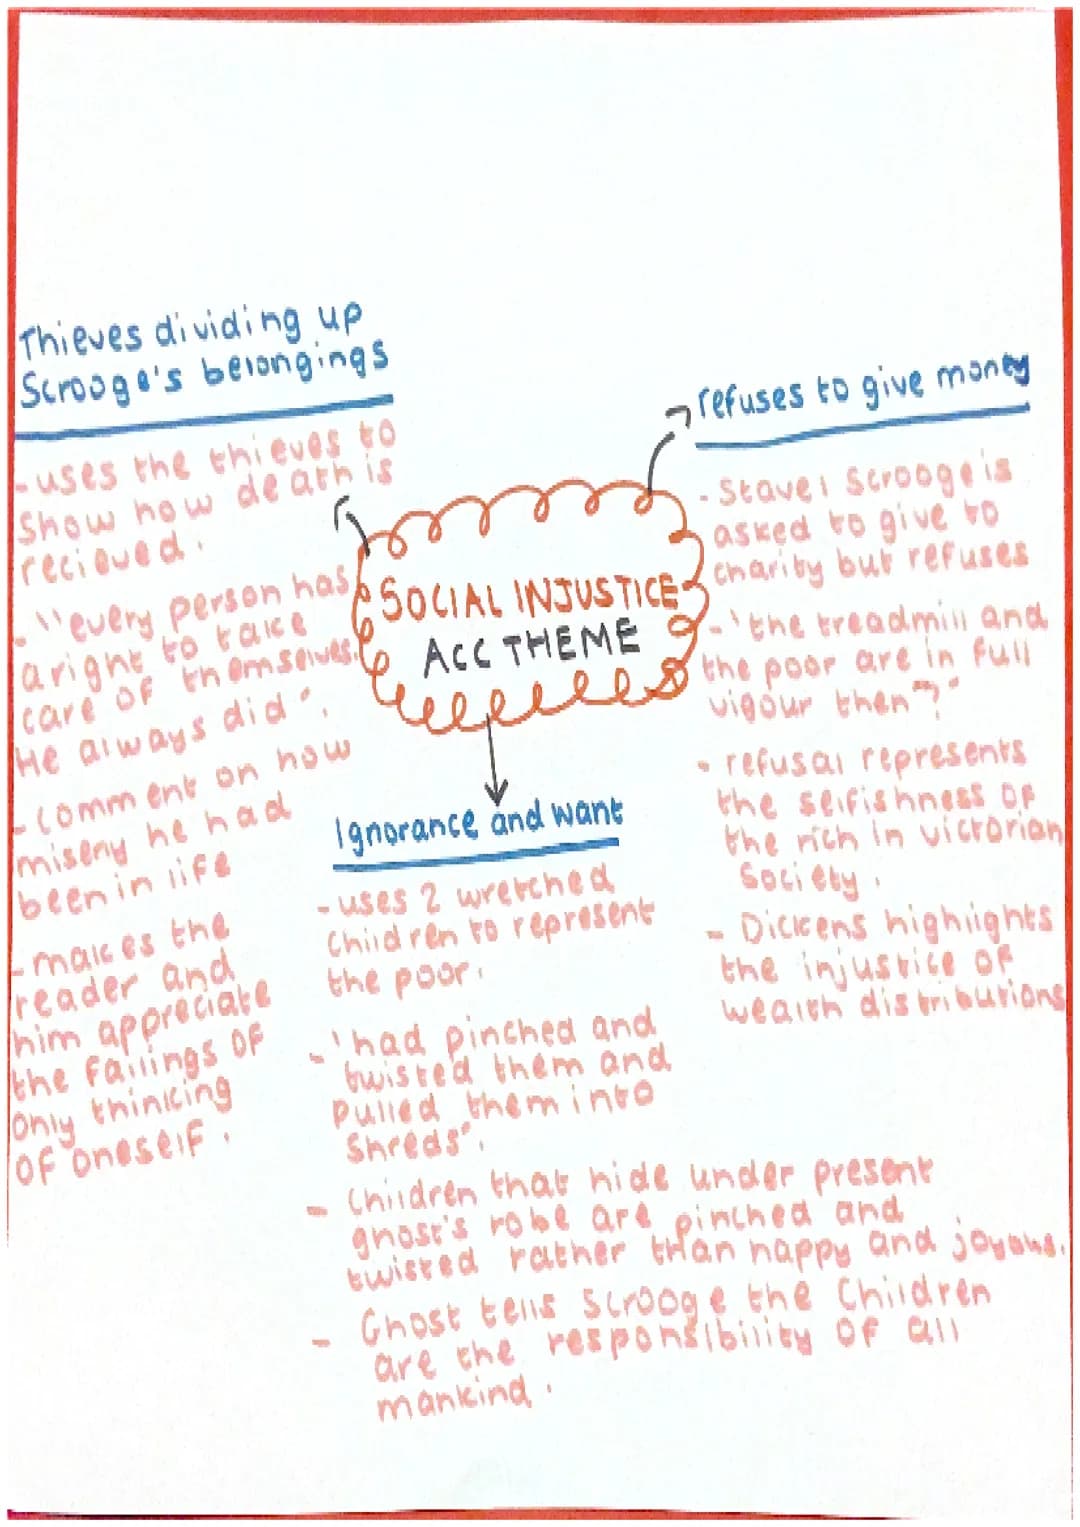 Thieves dividing up
Scrooge's belongings
-uses the thieves to
show how death is
recieved.
- "every person has
a right to take
care of themselves.
He always did".
-comment on how
misery he had
been in life
-makes the
reader and
him appreciate
the failings of
only thinking
of oneself.
SOCIAL INJUSTICE
ACC THEME
refuses to give money
- Stave 1 Scrooge is
asked to give to
charity but refuses
-'the treadmill and
the poor are in full
vigour then"?"
- refusal represents
the selfishness of
the rich in victorian
Society.
- Dickens highlights
the injustice of
wealth distributions
Ignorance and want
-uses 2 wretched
children to represent
the poor.
-'had pinched and
twisted them and
pulled them into
Shreds".
- Children that hide under present
ghost's robe are pinched and
twisted rather than happy and joyous.
- Ghost tells Scrooge the Children
are the responsibility of all
mankind.